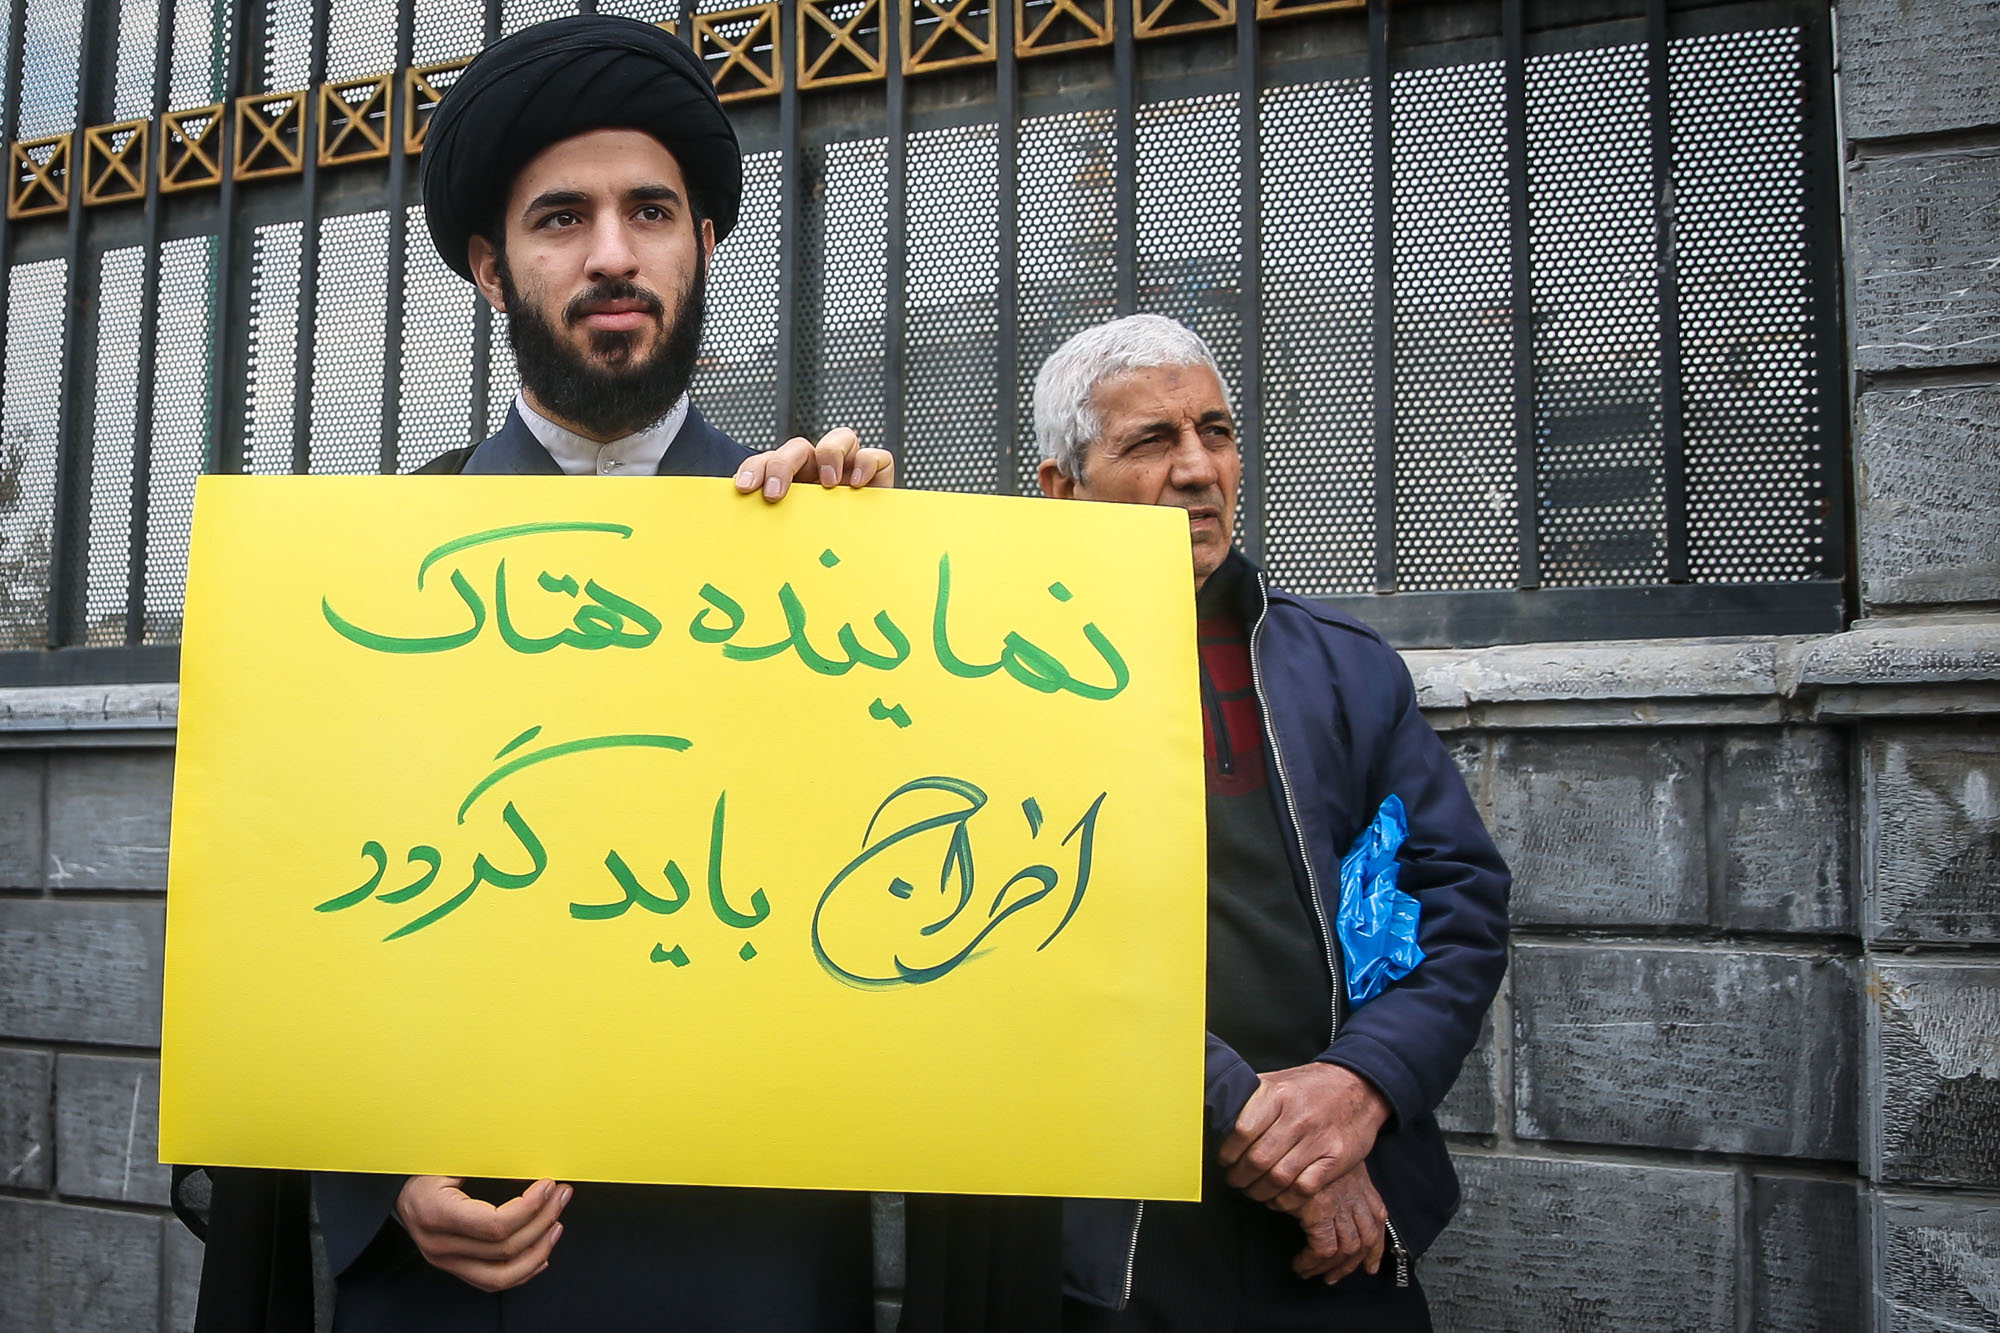 نماینده هتاک
اخراج باید گردد